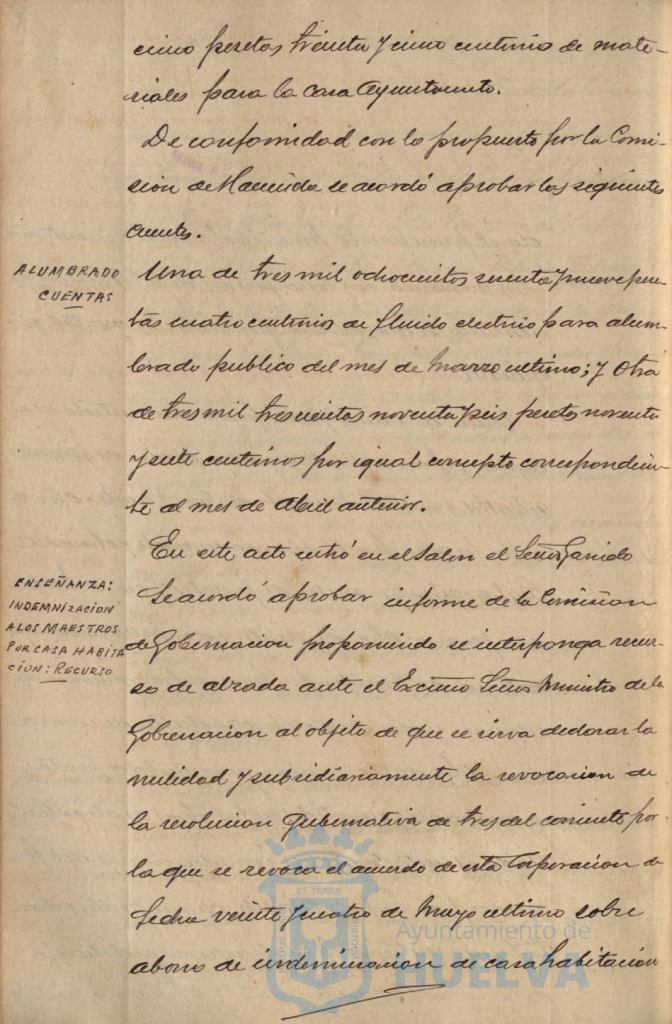 cinco pesetas treinta y cinco centimos de mate-
riales para la casa Ayuntamiento.
De conformidad con lo propuesto por la Comi-
sion de Hacienda se acordó aprobar las siguientes
cuentas.
ALUMBRADO
CUENTAS
Una de tres mil ochocientos y nueve pese-
tas cuatro centimos de fluido electrico para alum-
brado publico del mes de Marzo ultimo; y Otra
de tres mil trescientas noventa y seis pesetas noventa
y siete centimos por igual concepto correspondien-
te al mes de Abril anterior.
En este acto entró en el Salon el Señor Garrido
ENSEÑANZA:
INDEMNIZACION
A LOS MAESTROS
POR CASA HABITA
CION: RECURSO
Se acordó aprobar informe de la Comision
de Gobernacion proponiendo se interponga recur-
so de alzada ante el Excmo Señor Ministro de la
Gobernacion al objeto de que se sirva declarar la
nulidad y subsidiariamente la revocacion de
la resolucion gubernativa de tres del corriente por
la que se revoca el acuerdo de esta Corporacion de
fecha veinte y cuatro de Mayo ultimo sobre
abono de indemnizacion de casa habitacion
ET TERRÆ
Ayuntamiento de
HUELVA